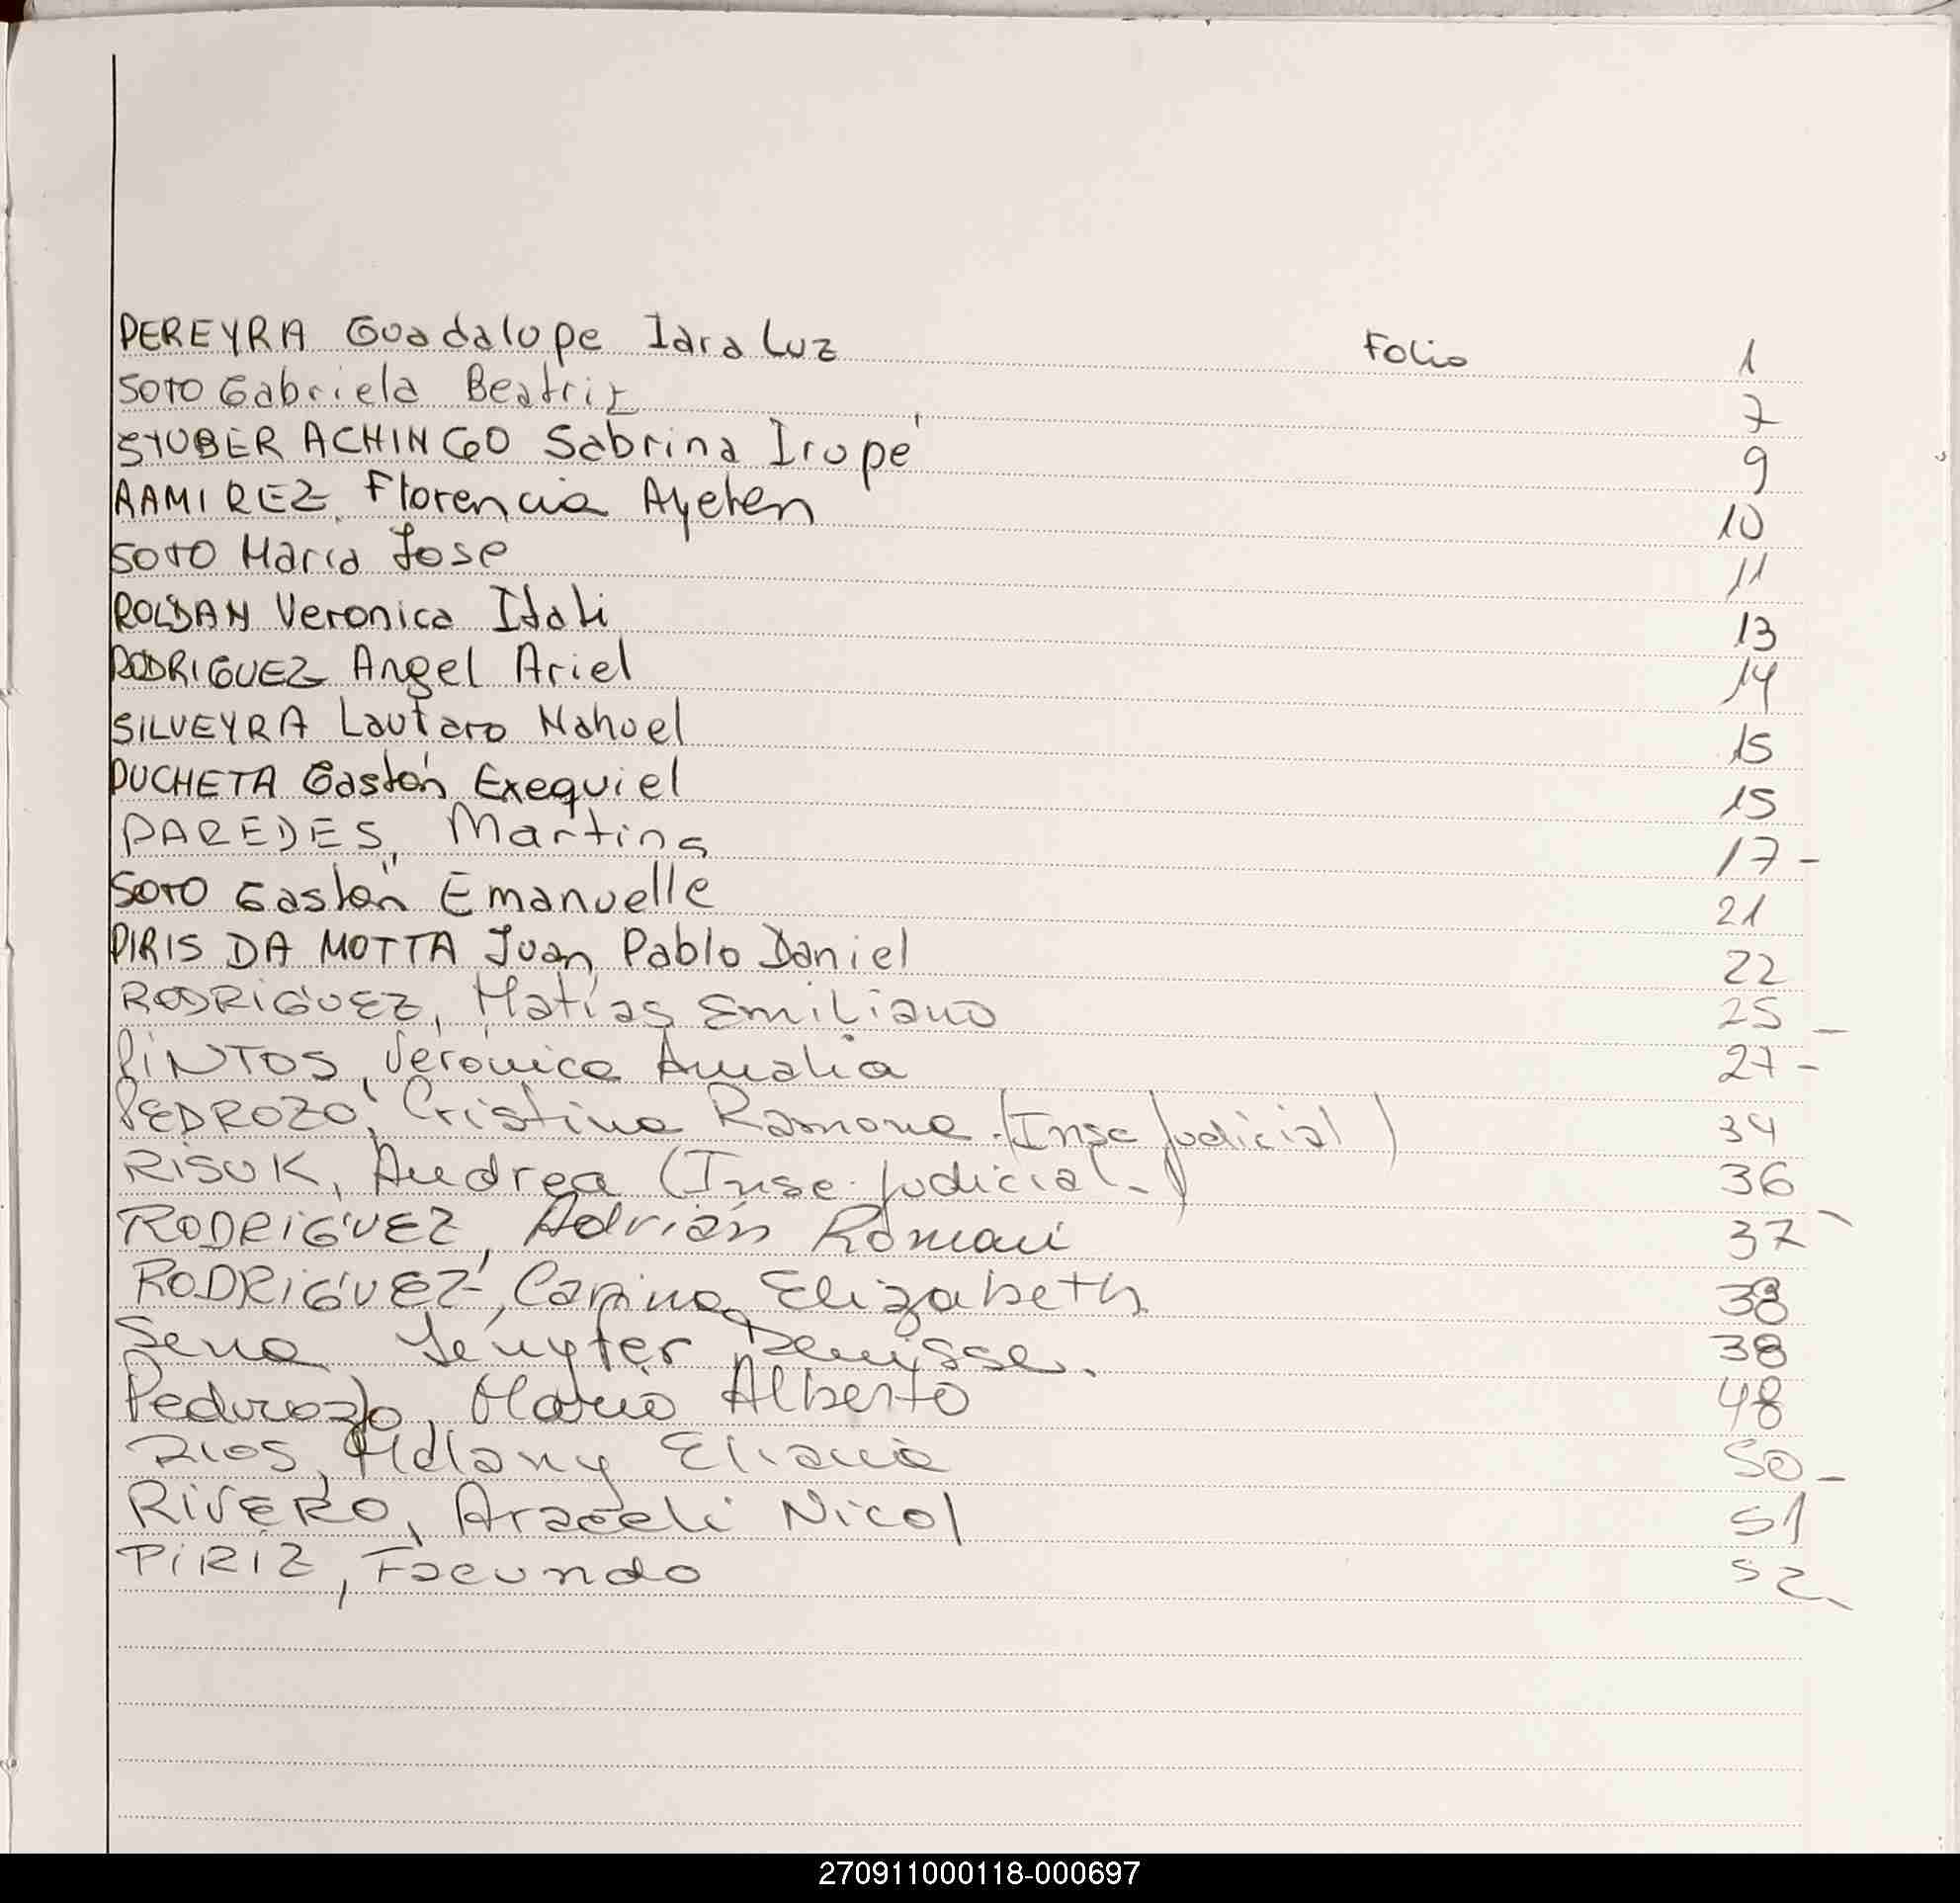 PEREYRA Guadalupe Iara Luz Folio 1
SOTO Gabriela Beatriz 7
STUBER ACHINGO Sabrina Irupé 9
RAMIREZ, Florencia Ayelen 10
SOTO Maria Jose 11
ROLDAN Veronica Itati 13
RODRIGUEZ Angel Ariel 14
SILVEYRA Lautaro Nahuel 15
PUCHETA Gastón Exequiel 15
PAREDES, Martina 17-
SOTO Gastón Emanuelle 21
PIRIS DA MOTTA Juan Pablo Daniel 22
RODRIGUEZ, Matías Emiliano 25 -
PINTOS, Verónica Amalia 27-
PEDROZO, Cristina Ramona. (Insc Judicial) 34
RISUK, Andrea (Insc. Judicial.) 36
RODRIGUEZ, Adrián Román 37
RODRIGUEZ, Carina Elizabeth 38
Sena Jenyfer Denisse. 38
Pedrozo, Mario Alberto 48
RIOS, Eliana 50-
RIVERO, Araceli Nicol 51
PIRIZ, Facundo 52
270911000118-000697